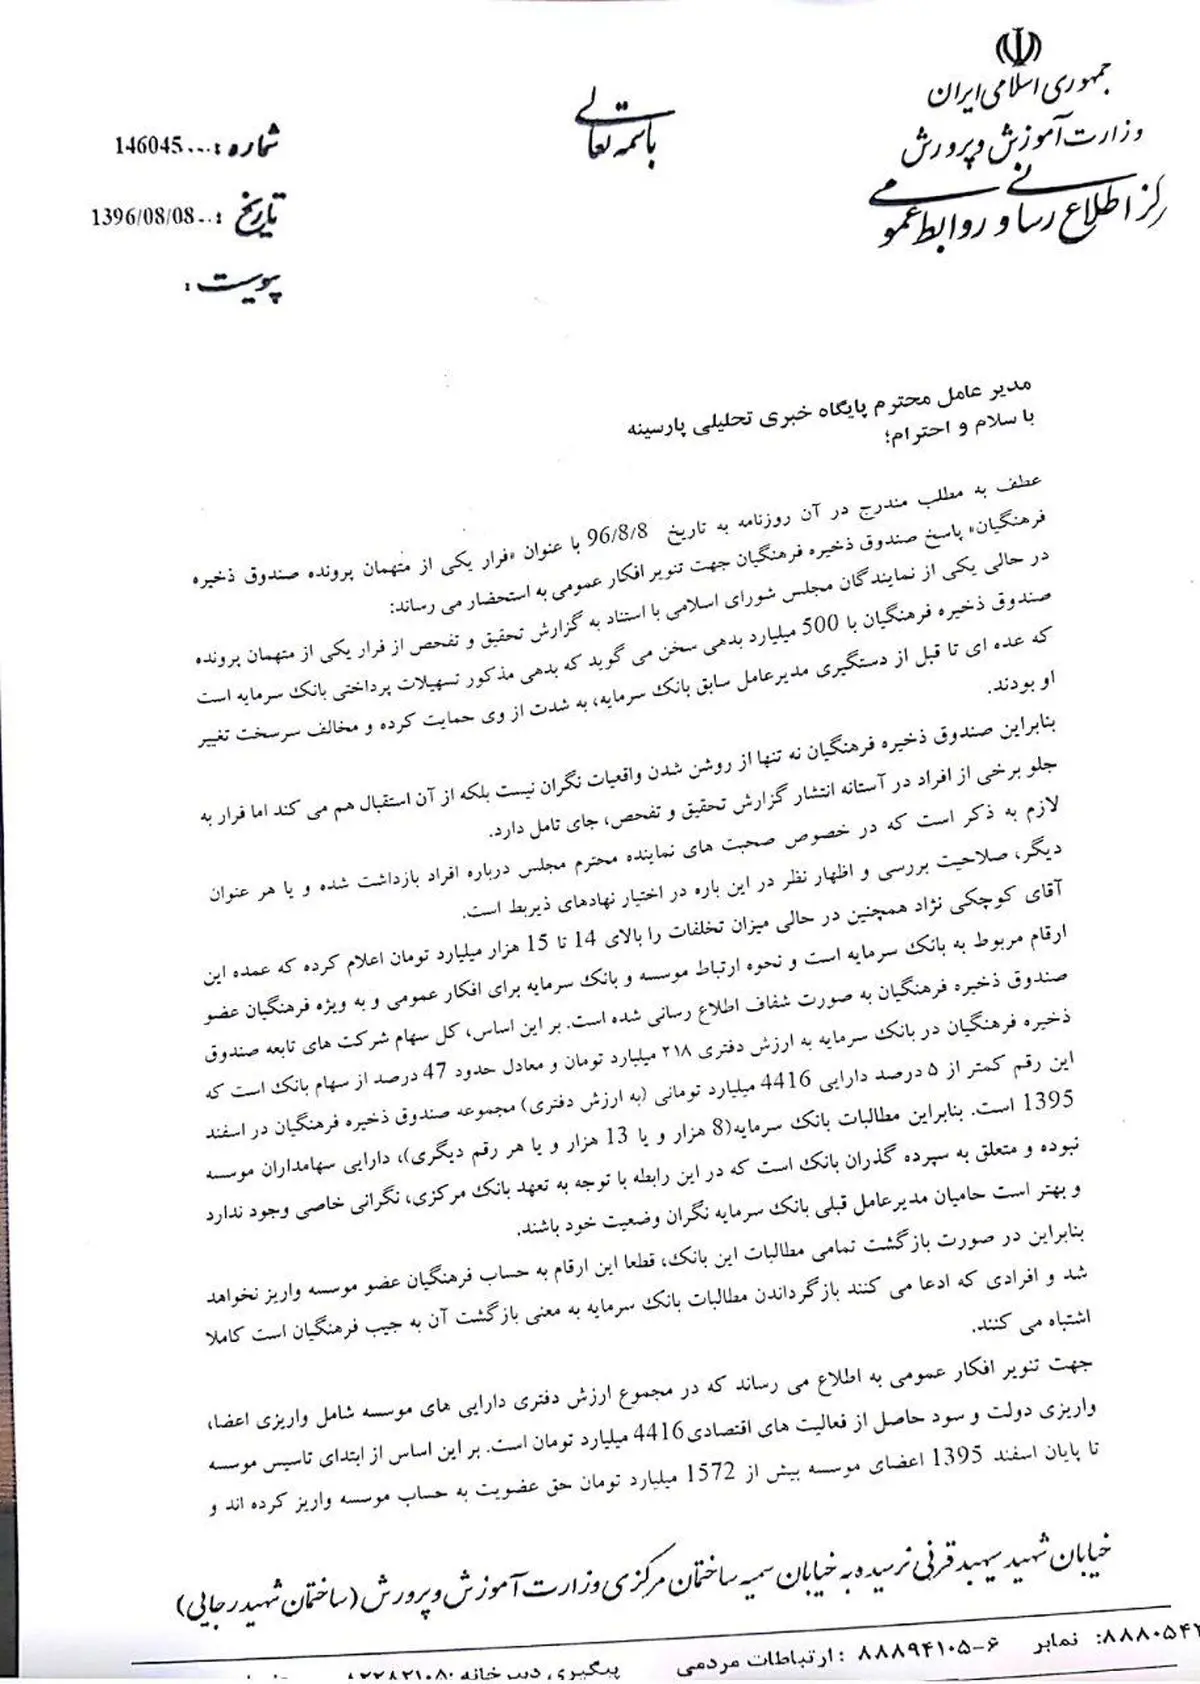 جمهوری اسلامی ایران
وزارت آموزش و پرورش
رکز اطلاع رسانی و روابط عمومی
باسمه تعالی
شماره : 146045
تاریخ : 1396/08/08
پیوست :
مدیر عامل محترم پایگاه خبری تحلیلی پارسینه
با سلام و احترام؛
عطف به مطلب مندرج در آن روزنامه به تاریخ 96/8/8 با عنوان «فرار یکی از متهمان پرونده صندوق ذخیره
فرهنگیان» پاسخ صندوق ذخیره فرهنگیان جهت تنویر افکار عمومی به استحضار می رساند:
در حالی یکی از نمایندگان مجلس شورای اسلامی با استناد به گزارش تحقیق و تفحص از فرار یکی از متهمان پرونده
صندوق ذخیره فرهنگیان با 500 میلیارد بدهی سخن می گوید که بدهی مذکور تسهیلات پرداختی بانک سرمایه است
که عده ای تا قبل از دستگیری مدیرعامل سابق بانک سرمایه، به شدت از وی حمایت کرده و مخالف سرسخت تغییر
او بودند.
بنابراین صندوق ذخیره فرهنگیان نه تنها از روشن شدن واقعیات نگران نیست بلکه از آن استقبال هم می کند اما فرار به
جلو برخی از افراد در آستانه انتشار گزارش تحقیق و تفحص، جای تامل دارد.
لازم به ذکر است که در خصوص صحبت های نماینده محترم مجلس درباره افراد بازداشت شده و یا هر عنوان
دیگر، صلاحیت بررسی و اظهار نظر در این باره در اختیار نهادهای ذیربط است.
آقای کوچکی نژاد همچنین در حالی میزان تخلفات را بالای 14 تا 15 هزار میلیارد تومان اعلام کرده که عمده این
ارقام مربوط به بانک سرمایه است و نحوه ارتباط موسسه و بانک سرمایه برای افکار عمومی و به ویژه فرهنگیان عضو
صندوق ذخیره فرهنگیان به صورت شفاف اطلاع رسانی شده است. بر این اساس، کل سهام شرکت های تابعه صندوق
ذخیره فرهنگیان در بانک سرمایه به ارزش دفتری ۲۱۸ میلیارد تومان و معادل حدود 47 درصد از سهام بانک است که
این رقم کمتر از ۵ درصد دارایی 4416 میلیارد تومانی (به ارزش دفتری) مجموعه صندوق ذخیره فرهنگیان در اسفند
1395 است. بنابراین مطالبات بانک سرمایه(8 هزار و یا 13 هزار و یا هر رقم دیگری)، دارایی سهامداران موسسه
نبوده و متعلق به سپرده گذران بانک است که در این رابطه با توجه به تعهد بانک مرکزی، نگرانی خاصی وجود ندارد
و بهتر است حامیان مدیرعامل قبلی بانک سرمایه نگران وضعیت خود باشند.
بنابراین در صورت بازگشت تمامی مطالبات این بانک، قطعا این ارقام به حساب فرهنگیان عضو موسسه واریز نخواهد
شد و افرادی که ادعا می کنند بازگرداندن مطالبات بانک سرمایه به معنی بازگشت آن به جیب فرهنگیان است کاملا
اشتباه می کنند.
جهت تنویر افکار عمومی به اطلاع می رساند که در مجموع ارزش دفتری دارایی های موسسه شامل واریزی اعضا،
واریزی دولت و سود حاصل از فعالیت های اقتصادی 4416 میلیارد تومان است. بر این اساس از ابتدای تاسیس موسسه
تا پایان اسفند 1395 اعضای موسسه بیش از 1572 میلیارد تومان حق عضویت به حساب موسسه واریز کرده اند و
خیابان شهید سپهبد قرنی نرسیده به خیابان سمیه ساختمان مرکزی وزارت آموزش و پرورش (ساختمان شهید رجایی)
نمابر :۸۸۸۰۵۴ ارتباطات مردمی : ۸۸۸۹۴۱۰۵-۶ پیگیری دبیرخانه :۸۲۲۸۲۱۰۸